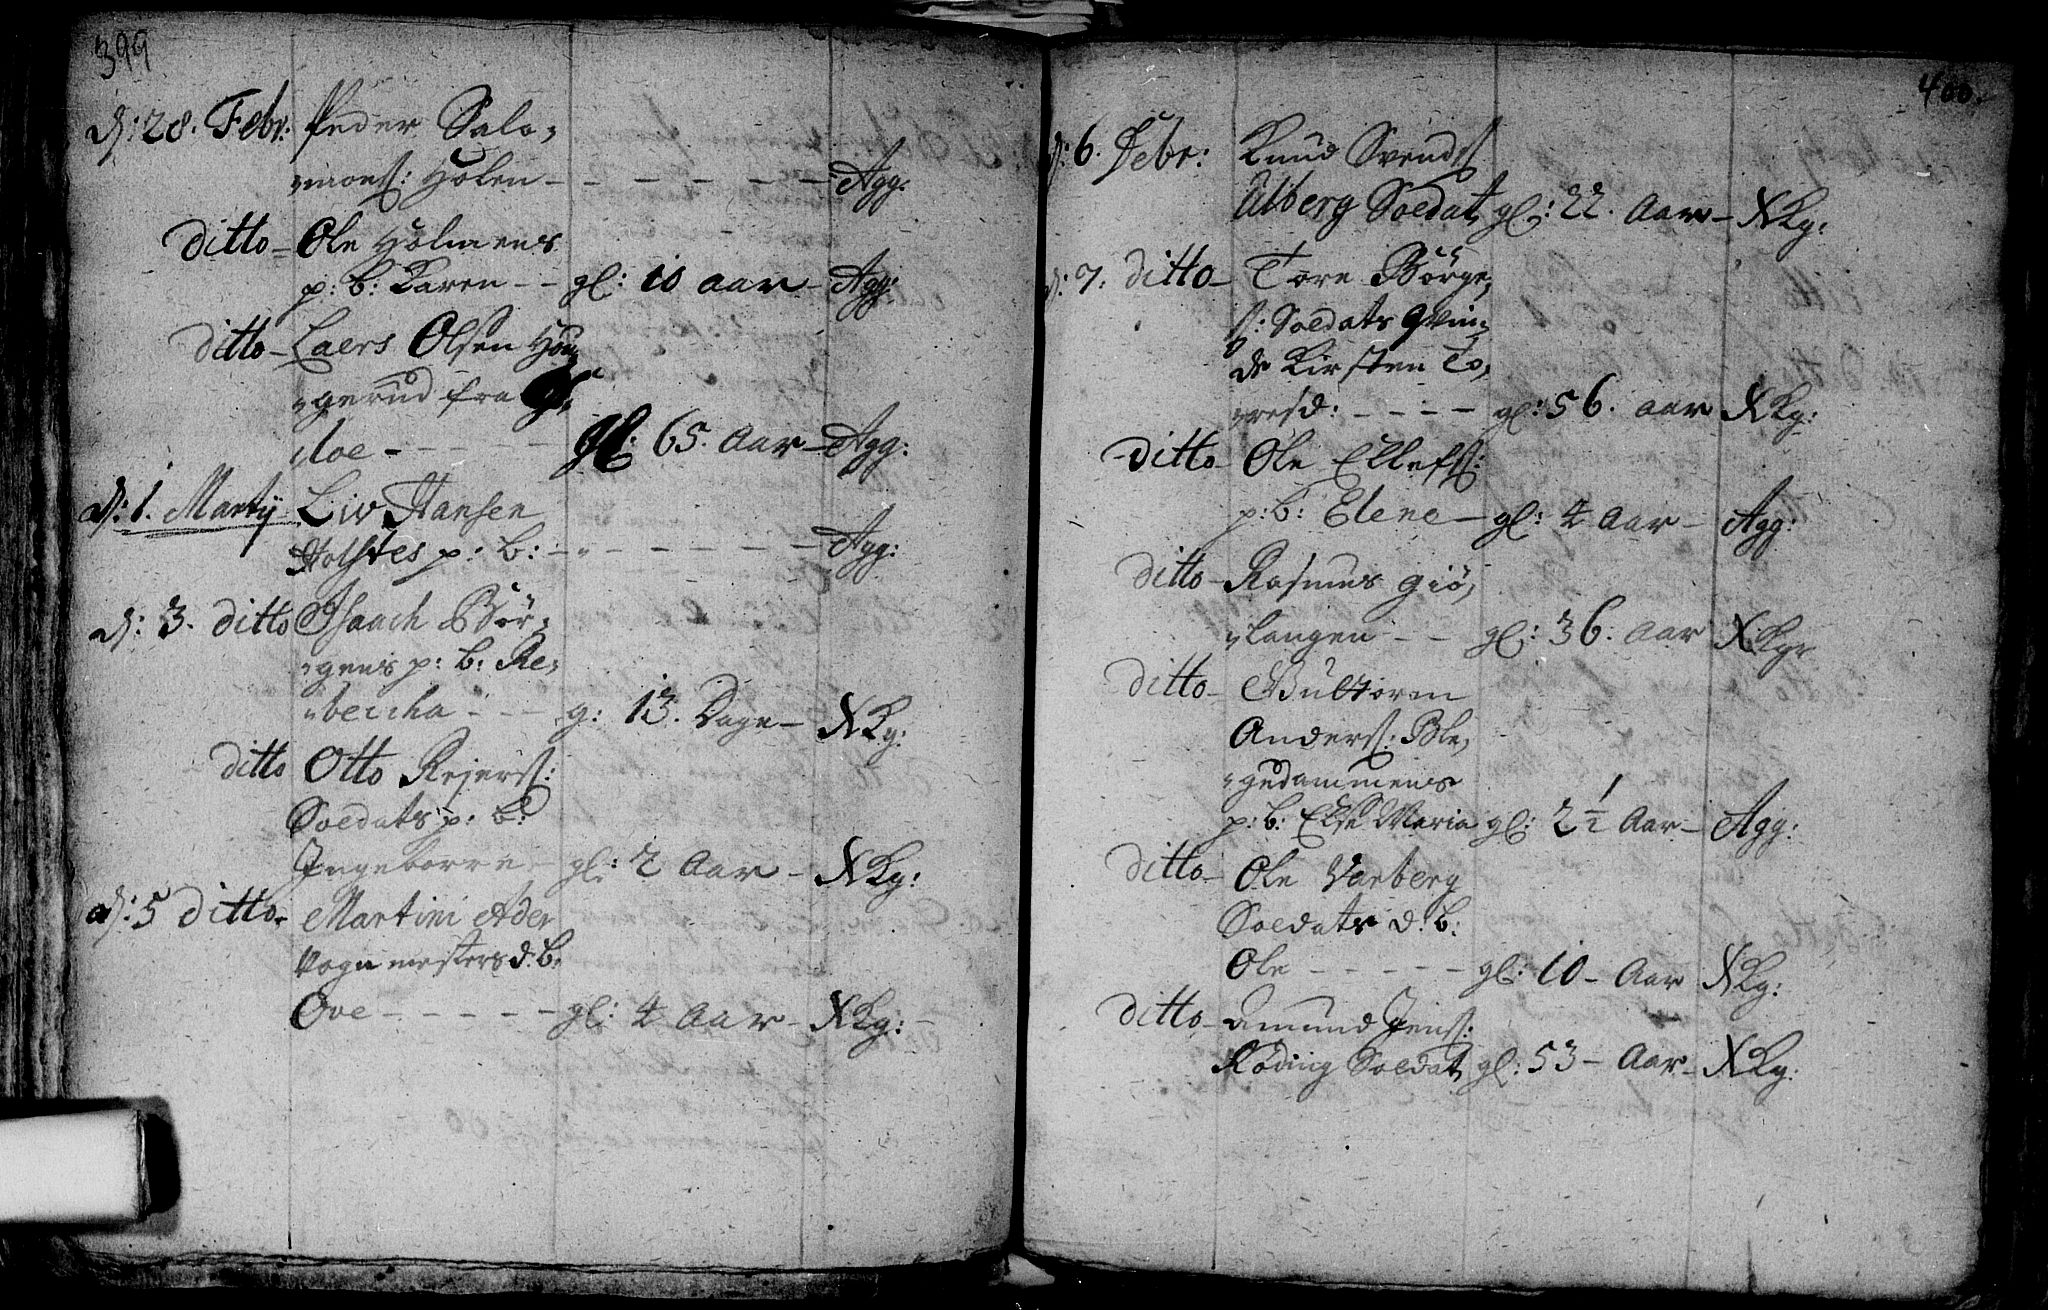 399
d: 28. Febr: Peder Salo,
,,mons: Holen - - - - - - Agg:
ditto - Ole Holmens
p: b: Karen - - gl: 10 Aar - Agg:
ditto - Laers Olsen Hou,
,,gerud fra
doe - - - - gl: 65. Aar - Agg:
d: 1. Martij Liv Hansen
Holstes p: b: - - - - - - Agg:
d: 3. ditto Isaach Bör,
,,gens p: b: Re,
,,beccha - - - g: 13. Dage - XKg:
ditto Otto Rejerss:
Soldats p: b:
Ingeborre - gl: 2 Aar - XKg:
d: 5 ditto - Martini Ader
Vogn mesters d: b:
Ove - - - - - gl: 4 Aar - XKg: -
400.
d: 6. Febr: Knud Svends
Alberg Soldat gl: 22. Aar - XKg:
d: 7. ditto - Tore Börge,
s: Soldats Qvin,
de Kirsten To,
,,resd: - - - - gl: 56. Aar XKg:
ditto - Ole Ellefss:
p: b: Elene - gl: 4 Aar - Agg:
ditto - Rasmus Giö,
,,langen - - gl: 36. Aar XKg:
ditto - Gultorm
Anderss: Ble,
,,gedammens
p: b: Else Maria gl: 2 1/2 Aar - Agg:
ditto - Ole Varberg
Soldats d: b:
Ole - - - - - gl: 10 - Aar XKg:
ditto - Amund Jens:
Röding Soldat gl: 53 - Aar - XKg: